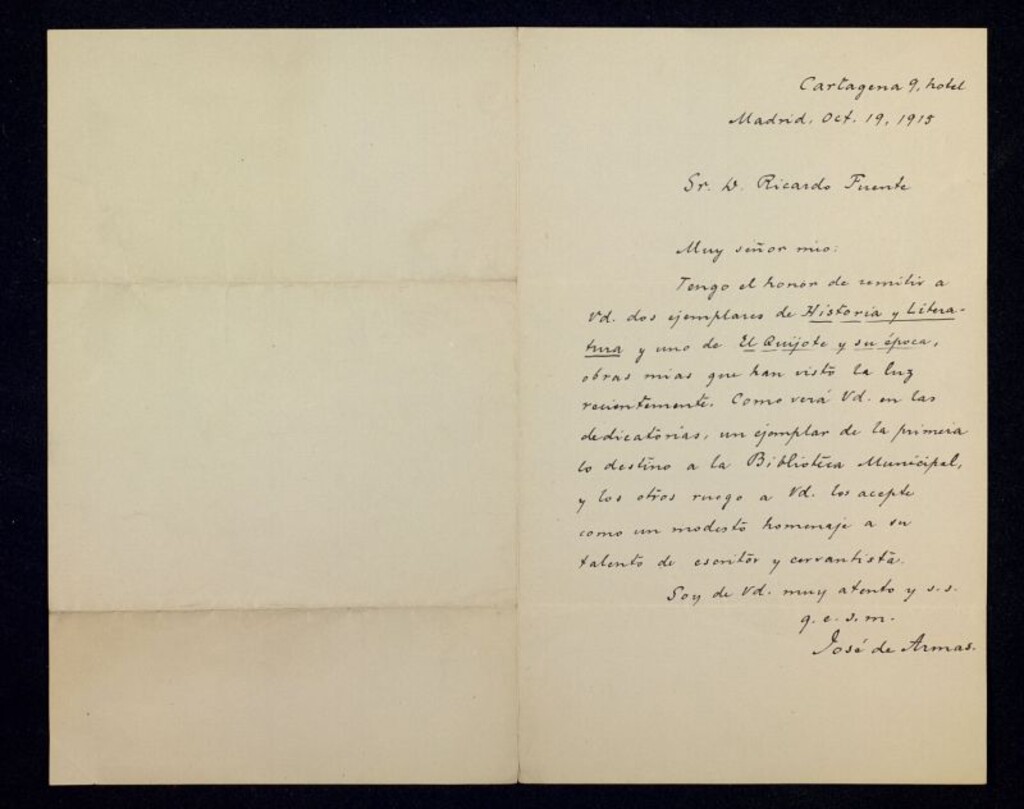 Cartagena 9, hotel
Madrid, Oct. 19, 1915
Sr. D. Ricardo Fuente
Muy señor mio:
Tengo el honor de remitir a
Vd. dos ejemplares de Historia y Litera-
tura y uno de El Quijote y su época,
obras mias que han visto la luz
recientemente. Como verá Vd. en las
dedicatorias, un ejemplar de la primera
lo destino a la Biblioteca Municipal,
y los otros ruego a Vd. los acepte
como un modesto homenaje a su
talento de escritor y cervantista.
Soy de Vd. muy atento y s.s.
q. e. s. m.
José de Armas.